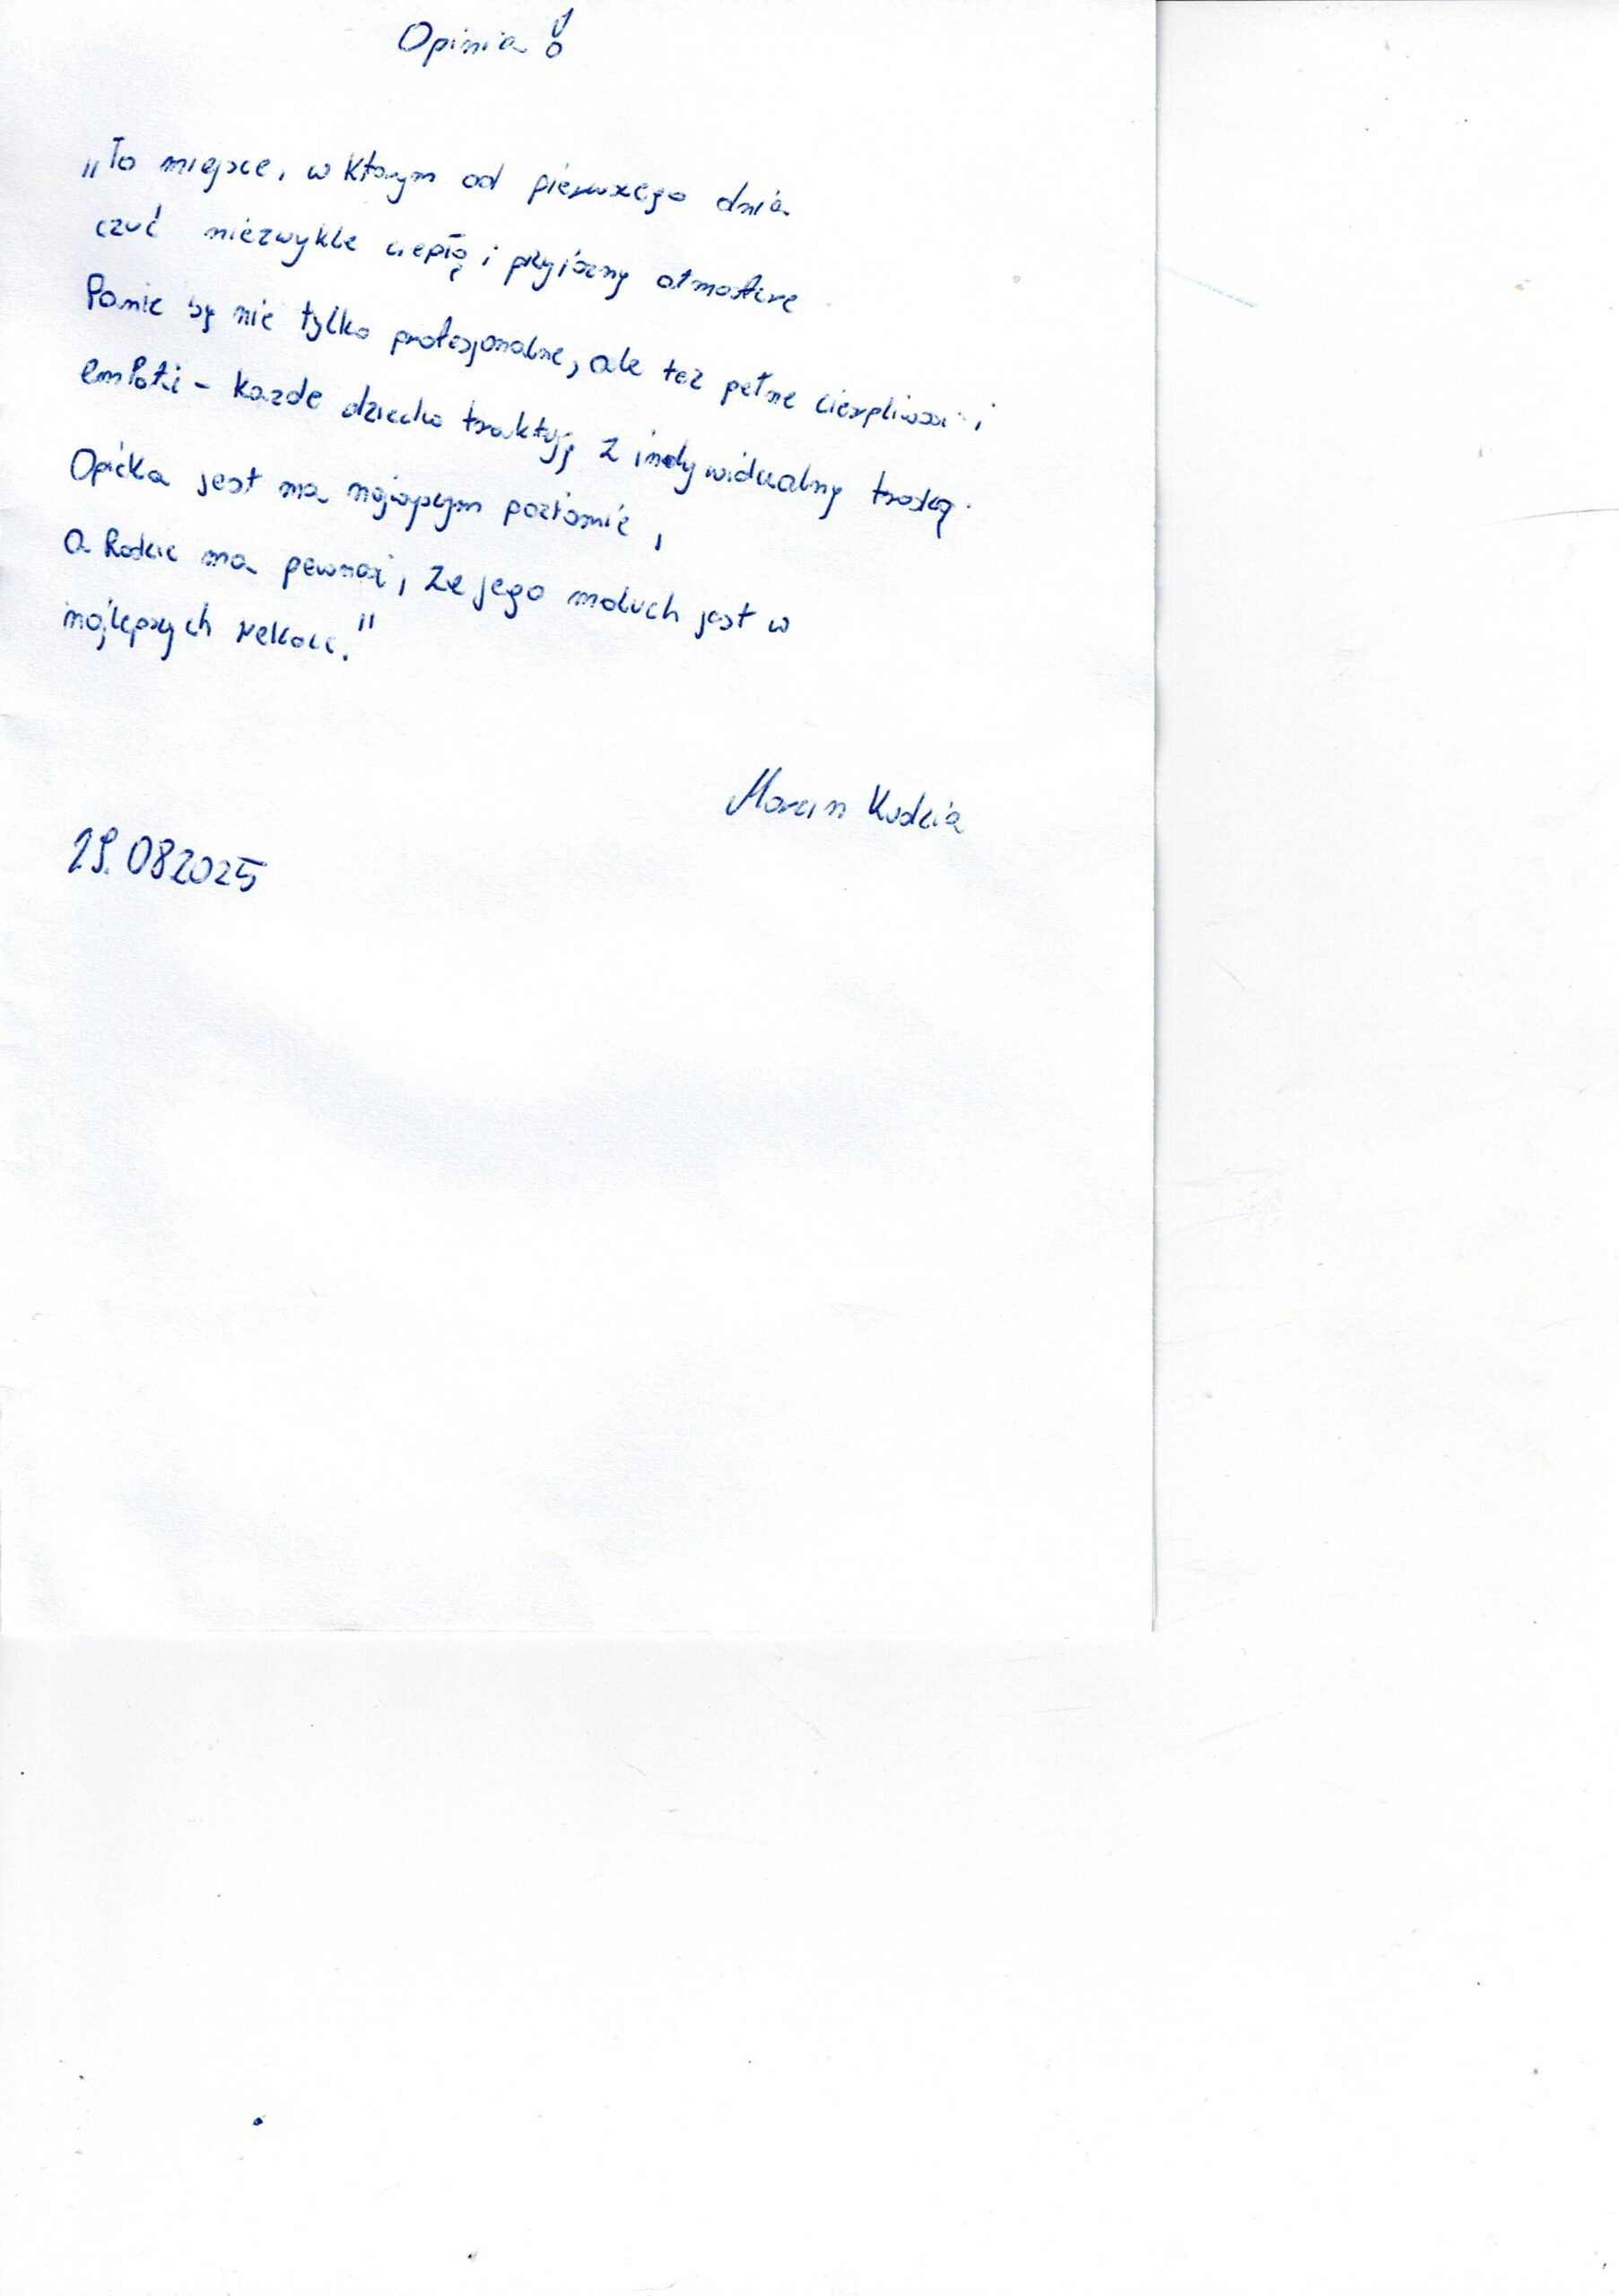 Opinia!
„To miejsce, w którym od pierwszego dnia
czuć niezwykle ciepłą i przyjazną atmosferę
Panie są nie tylko profesjonalne, ale też pełne cierpliwości i
empatii - każde dziecko traktują z indywidualną troską.
Opieka jest na najwyższym poziomie,
a Rodzic ma pewność, że jego maluch jest w
najlepszych rękach."
Marcin Kudzia
19.08 2025